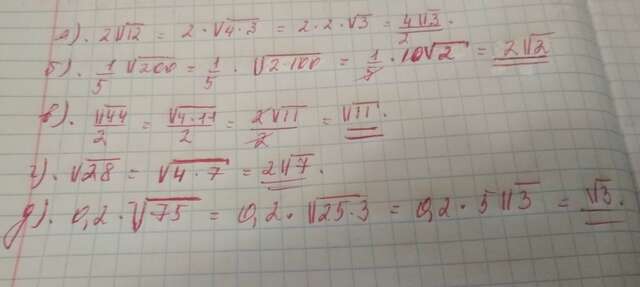 а). 2√12 = 2·√4·3 = 2·2·√3 = 4√3.
б). 1/5 √200 = 1/5 · √2·100 = 1/5 · 10√2 = 2√2
в). √44/2 = √4·11/2 = 2√11/2 = √11.
г). √28 = √4·7 = 2√7.
д). 0,2·√75 = 0,2·√25·3 = 0,2·5√3 = √3.